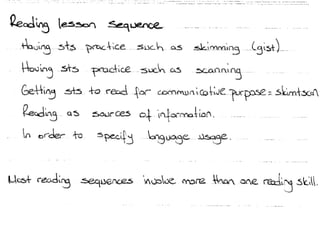 Reading lesson sequence
. Having sts practice such as skimming (gist)
. Having sts practice such as scanning
. Getting sts to read for communicative purpose = skim+scan
. Reading as sources of information.
. In order to specify language usage.
Most reading sequences involve more than one reading skill.